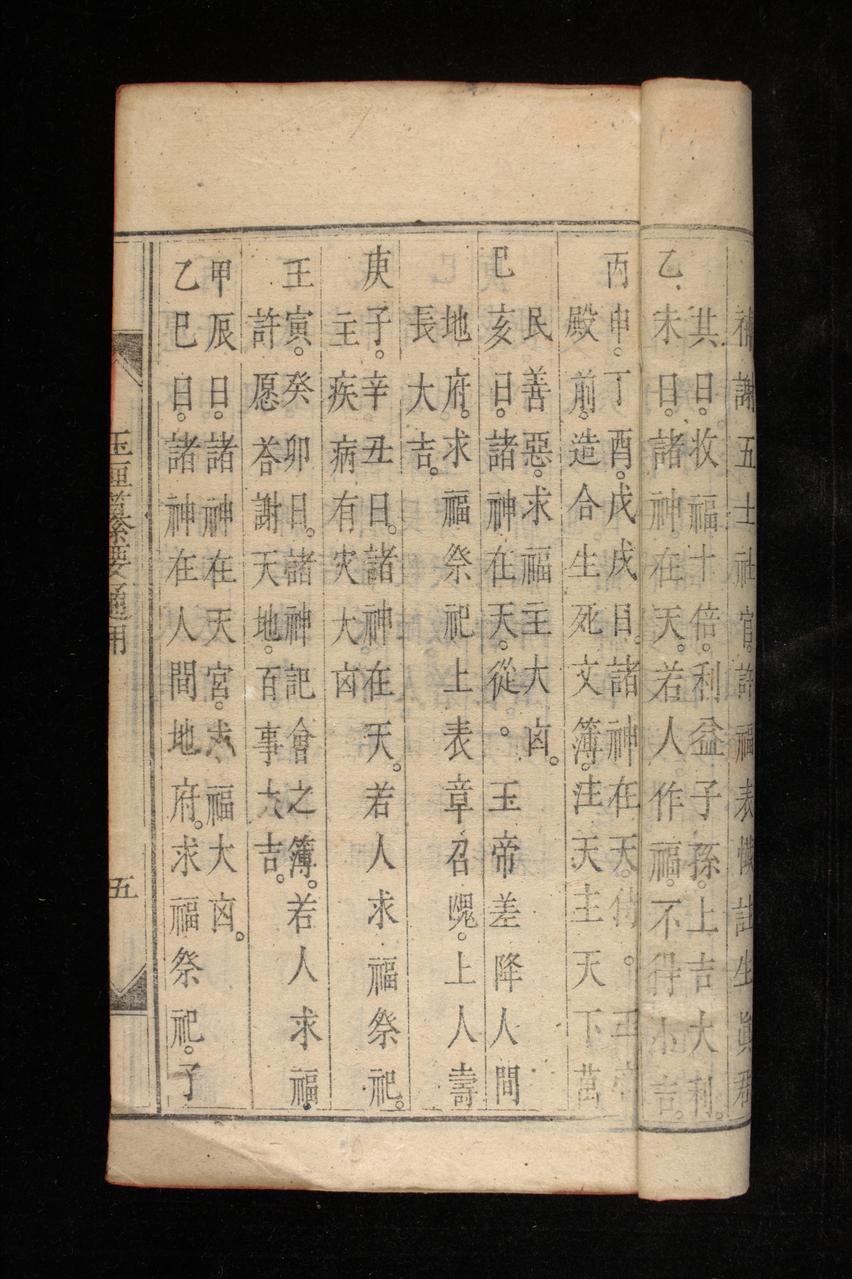 謝五土神官許福表懺註生眞君
其日收福十倍利益子孫上吉大利
乙未日諸神在天若人作福不得大吉
丙申丁酉戊戌日諸神在天
殿前造合生死文簿注天主天下萬
民善惡求福主大凶
巳亥日諸神在天從玉帝差降人間
地府求福祭祀上表章召䰟上人壽
長大吉
庚子辛丑日諸神在天若人求福祭祀
主疾病有灾大凶
壬寅癸卯日諸神記會之簿若人求福
許愿荅謝天地百事大吉
甲辰日諸神在天宮求福大凶
乙巳日諸神在人間地府求福祭祀子
玉匣纂要通用
五